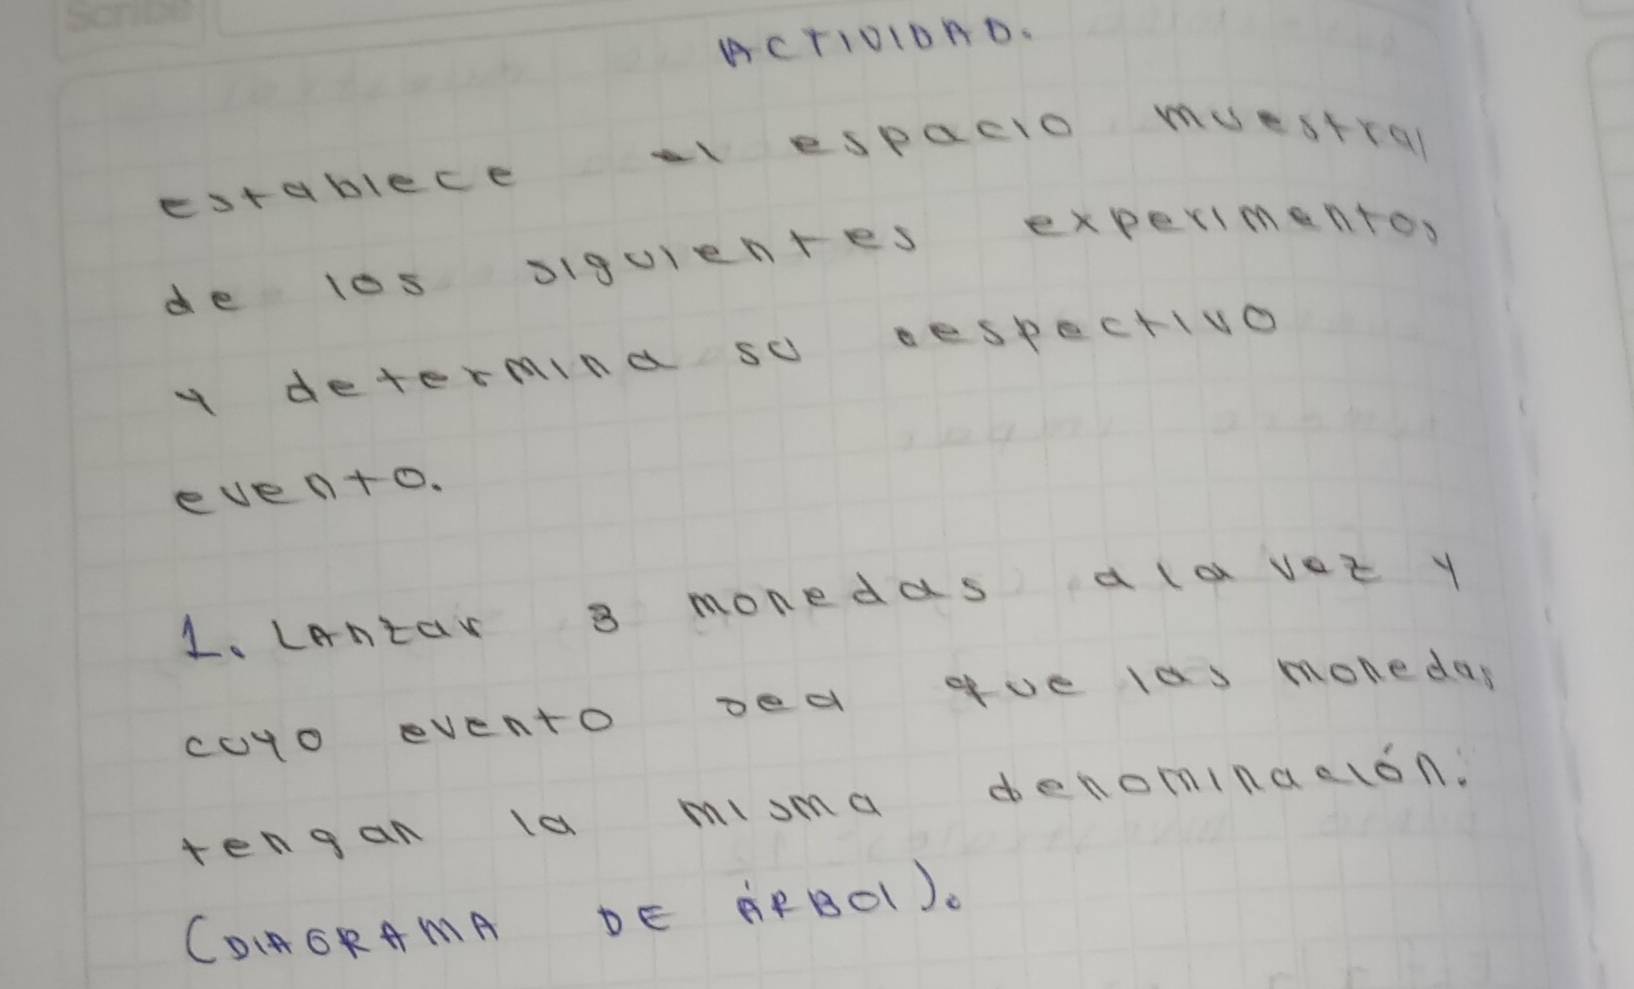 Scribe
ACTIVIDAD.
establece el espacio muestral
de los siguientes experimentos
y determina su respectivo
evento.
1. LAnzar 3 monedas a la vez y
cuyo evento sea que las monedas
tengan la misma denominación.
(DIAGRAMA DE ÁRBOl).